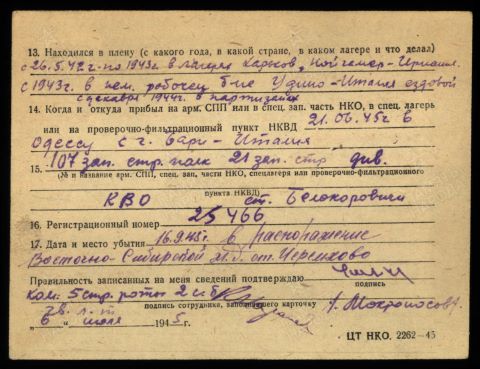 13. Находился в плену (с какого года, в какой стране, в каком лагере и что делал)
с 26.5.42 г. по 1943 г. в лагерях Харьков,
с 1943 г. в нем. рабочем б-не Удино-Италия ездовой
с декабря 1944 г. в партизанах
14. Когда и откуда прибыл на арм. СПП или в спец. зап. часть НКО, в спец. лагерь
или на проверочно-фильтрационный пункт НКВД 21.06.45 г. в
Одессу с г. Бари-Италия
15. 107 зап. стр. полк 21 зап. стр див.
(№ и название арм. СПП, спец. зап. части НКО, спецлагеря или проверочно-фильтрационного
пункта НКВД)
КВО ст. Белокоровичи
16. Регистрационный номер 25466
17. Дата и место убытия 16.9.45 г. в распоряжение
Восточно-Сибирской ж.д. ст. Черемхово
Правильность записанных на меня сведений подтверждаю
подпись
ком. 5 стр. роты 2 сб
подпись сотрудника, заполнявшего карточку
6 " июля 1945 г.
ЦТ НКО. 2262-45